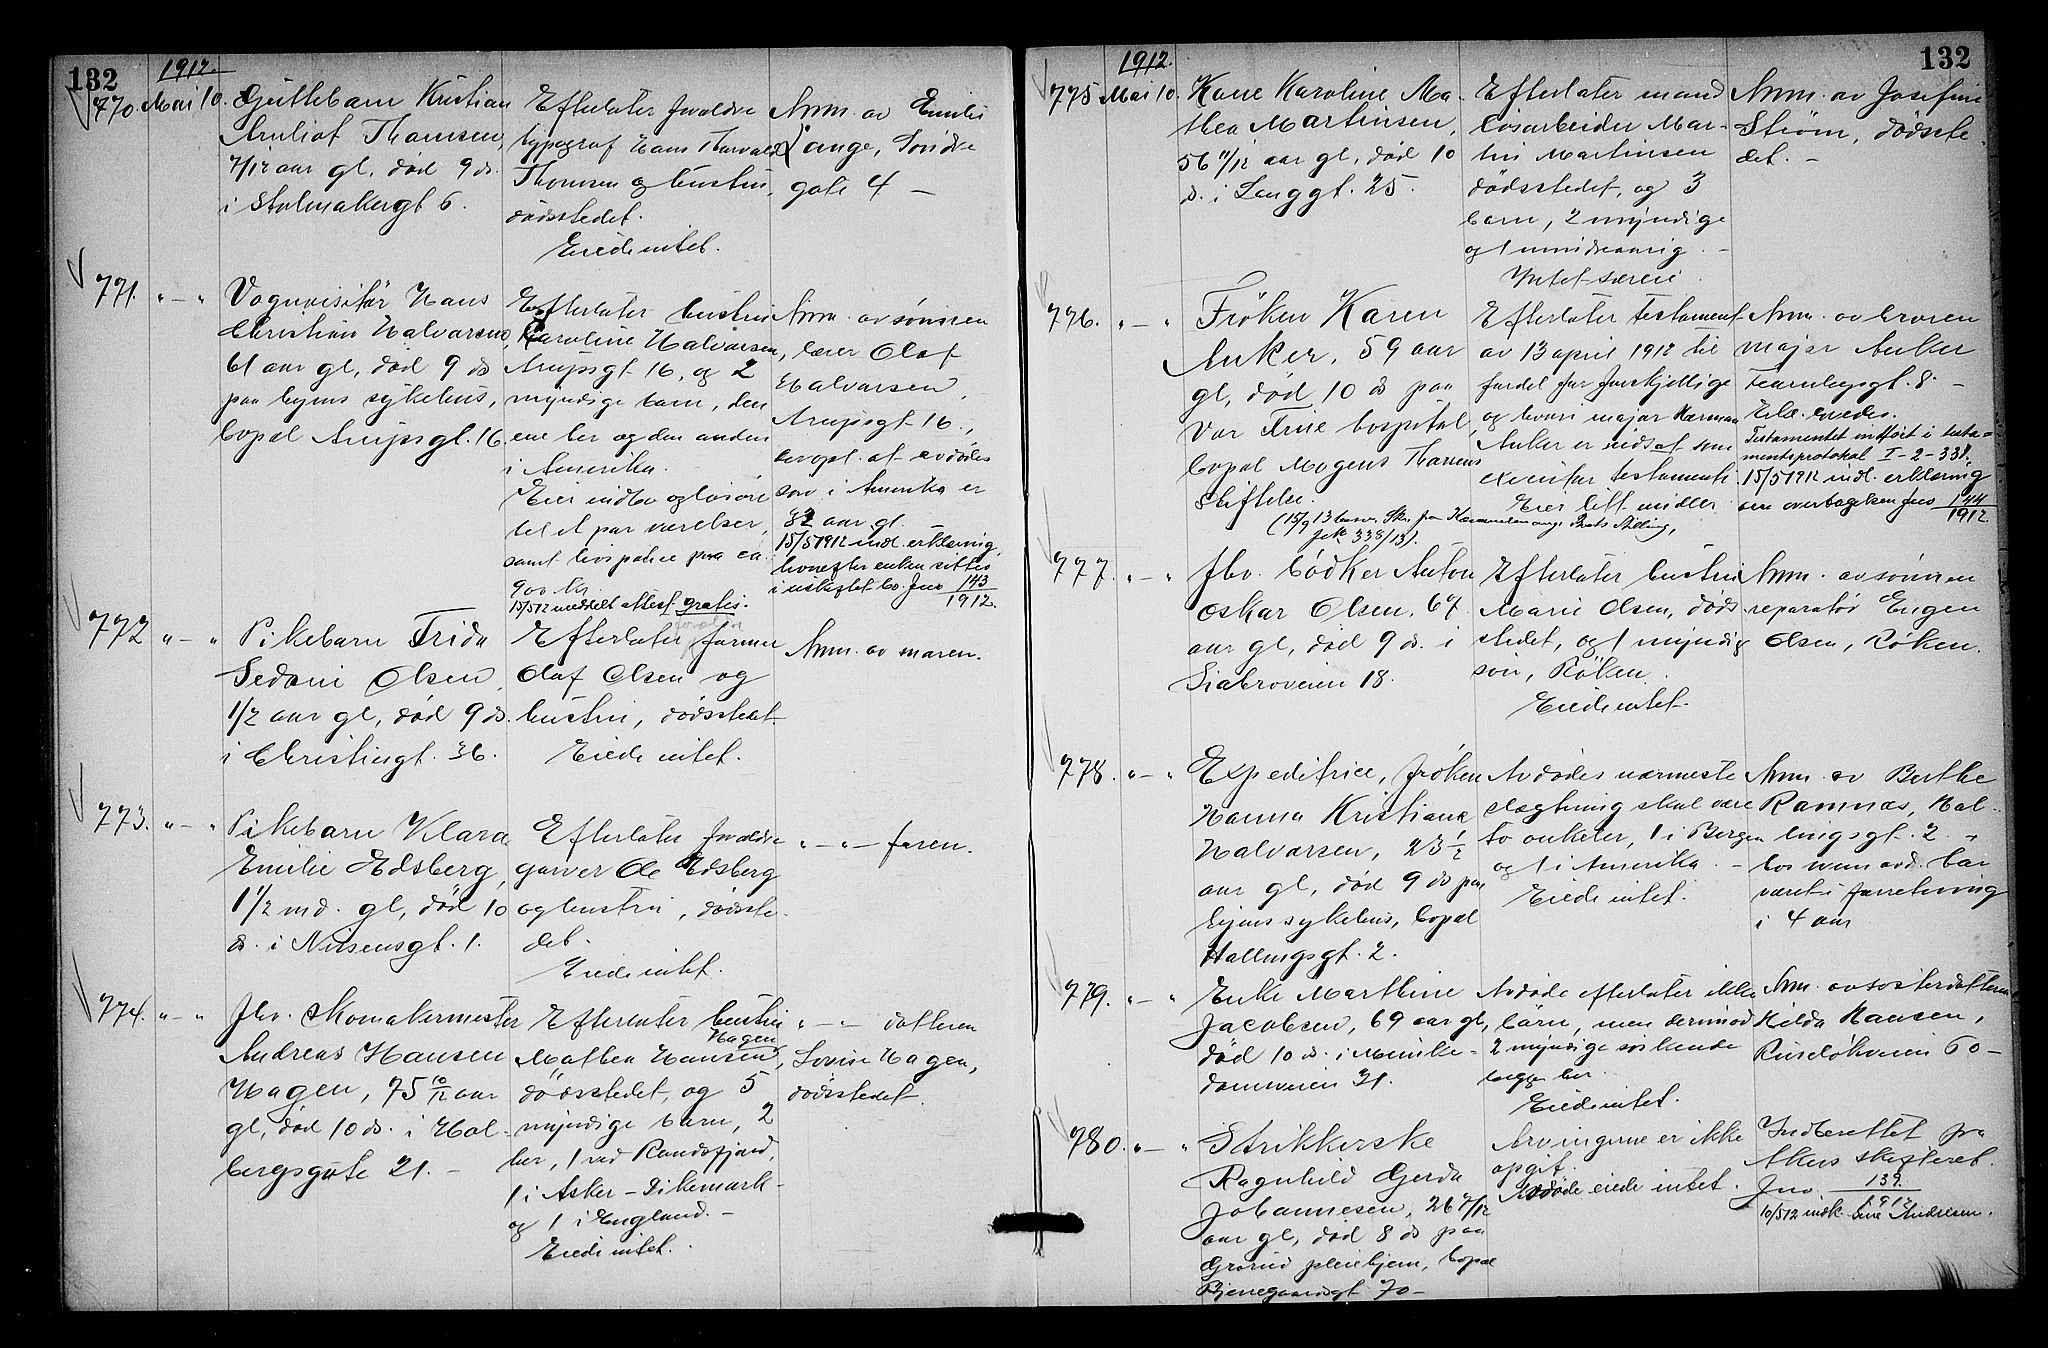 132
1912.
770. Mai 10. Guttebarn Kristian
Arnliot Thomsen,
7/12 aar gl, död 9 ds.
i Stolmakergt 6.
Efterlater foreldre
typograf Hans Thorvald
Thomsen og hustru,
dödsstedet.
Eiede intet.
Anm. av Emilie
Lange, Söndre
gate 4 –
771. " – " Vognvisitör Hans
Christian Halvorsen,
61 aar gl, död 9 ds
paa byens sykehus,
bopæl Arupsgt. 16.
Efterlater hustru
Karoline Halvorsen,
Arupsgt 16, og 2
myndige barn, den
ene her og den anden
i Amerika.
Eier indbo og lösöre
til et par værelser,
samt livspolice paa ca.
900 kr.
15/512 meddelt attest gratis.
Anm. av sönnen
lærer Olaf
Halvorsen,
Arupsgt 16.,
hvopl. at avdödes
sön i Amerika er
32 aar gl.
15/51912 indl. erklæring,
hvorefter enken sitter
i uskiftet bo Jno 143/1912.
772 " – " Pikebarn Frida
Sedoni Olsen,
1/2 aar gl, död 9 ds.
i Christiesgt. 36.
Efterlater
Olaf Olsen og
hustru, dödsstedet
Eiede intet.
Anm. av moren.
773. " – " Pikebarn Klara
Emilie Edsberg,
1 1/2 md. gl, död 10
ds. i Nissensgt. 1.
Efterlater foreldre
garver Ole Edsberg
og hustru, dödsste-
det.
Eiede intet.
" – " – faren.
774. " – " Fhv. Skomakermester
Andreas Hansen
Hagen, 75 10/12 aar
gl, död 10 ds. i Hol-
bergsgate 21. –
Efterlater hustru
Hagen
Mathea Hansen,
dödsstedet, og 5
myndige barn, 2
her, 1 ved Randsfjord,
1 i Asker – Dikemark –
og 1 i England. –
Eiede intet.
" – " datteren
Lovise Hagen,
dödsstedet.
132
1912.
775 Mai 10. Kone Karoline Ma-
thea Martinsen,
56 11/12 aar gl, död 10
ds. i Langgt. 25.
Efterlater mand
lösarbeider Mar-
tin Martinsen
dödsstedet, og 3
barn, 2 myndige
og 1 umindreaarig. –
Intet særeie.
Anm. av Josefine
Ström, dödsste-
det. –
776. " – " Fröken Karen
Anker, 59 aar
gl, död 10 ds paa
Vor Frue hospital,
bopæl Mogens Thorsens
Stiftelse.
Efterlater testament
av 13 april 1912 til
fordel for forskjellige
og hvori major Herman
Anker er indsat som
executor testamenti
Eier litt midler.
Anm. av broren
major Anker
Fearnleysgt. 8. –
Testamentet indfört i testa-
mentsprotokol I – 2 – 338.
15/51912 indl. erklæring
om overtagelsen Jno 144/1912.
777. " – " Fhv. bödker Anton
Oskar Olsen, 67
aar gl, död 9 ds. i
Diabroveien 18.
Efterlater hustru
Marie Olsen, döds-
stedet, og 1 myndig
sön, Röken.
Eiede intet.
Anm. av sönnen
reparatör Eugen
Olsen, Röken.
778. " – " Expeditrice, fröken
Hanna Kristiane
Halvorsen, 23 1/2
aar gl, död 9 ds paa
byens sykehus, bopæl
Hallingsgt. 2.
Avdödes nærmeste
slægtning skal være
to onkeler, 1 i Bergen
og 1 i Amerika. –
Eiede intet.
Anm. av Berthe
Ramnæs, Hal-
lingsgt. 2. –
hos hvem avd. har
været i forretning
i 4 aar
779. " – " Enke Marthine
Jacobsen, 69 aar gl,
död 10 ds. i Munke-
damsveien 31.
Avdöde efterlater ikke
barn, men derimod
2 myndige söskende
begge her.
Eiede intet.
Anm. av sösterdatteren
Hilda Hansen,
Ruselökveien 60 –
780. " – " Strikkerske
Ragnhild Gerda
Johannesen, 26 7/12
aar gl, död 8 ds paa
Grorud pleiehjem, bopæl
Bjerregaardsgt 70 –
Arvingerne er ikke
opgit.
Avdöde eiede intet.
Indberettet fra
Akers skifteret.
Jno. 139/1912